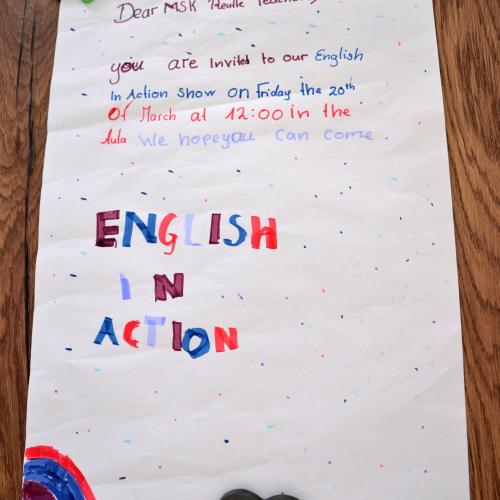 Dear MSK Realle Teachers
you are Invited to our English
In Action show on Friday the 20th
Of March at 12:00 in the
Aula We hope you can come.
ENGLISH
IN
ACTION